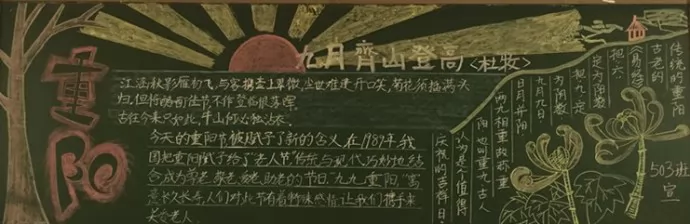 重阳
九月齊山登高<杜牧>
江涵秋影雁初飞,与客携壶上翠微,尘世难逢开口笑,菊花须插满头
归,但将酩酊佳节不作登临恨落晖
古往今来只如此,牛山何必独沾衣
今天的重阳节被赋予了新的含义,在1989年,我
国把重阳赋予给了老人节传统与现代巧妙地结
合成为尊老、敬老、爱老、助老的节日,九九重阳,寓
意长久长寿人们对此节有着特殊感情让我们携手来
关爱老人
传统的重阳
古老的
《易经》
把六
定为阴数
把九定
为阳数
九月九日
日月并阳
两九相重故称重
阳也叫重九古人
认为是个值得
庆祝的吉祥日
503班
宣